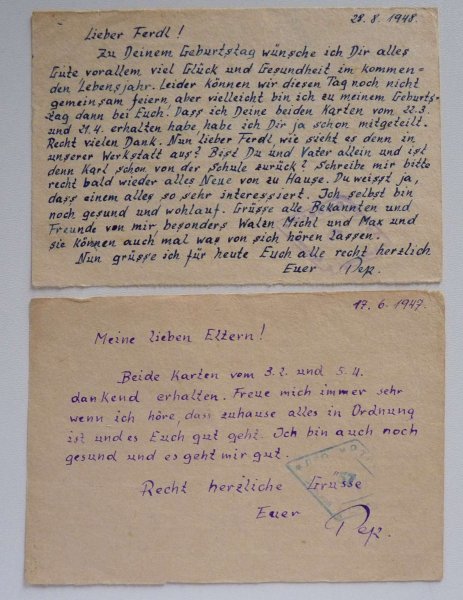 28.8.1948.
Lieber Ferdl!
Zu Deinem Geburtstag wünsche ich Dir alles
Gute vorallem viel Glück und Gesundheit im kommen=
den Lebensjahr. Leider können wir diesen Tag noch nicht
gemeinsam feiern, aber vielleicht bin ich zu meinem Geburts-
tag dann bei Euch. Dass ich Deine beiden Karten vom 22.3.
und 21.4. erhalten habe, habe ich Dir ja schon mitgeteilt.
Recht vielen Dank. Nun lieber Ferdl, wie sieht es denn in
unserer Werkstatt aus? Bist Du und Vater allein und ist
denn Karl schon von der Schule zurück? Schreibe mir bitte
recht bald wieder alles Neue von zu Hause. Du weisst ja,
dass einem alles so sehr interessiert. Ich selbst bin
noch gesund und wohlauf. Grüsse alle Bekannten und
Freunde von mir besonders Michl und Max und
sie können auch mal was von sich hören lassen.
Nun grüsse ich für heute Euch alle recht herzlich
Euer Pep.
17.6.1947.
Meine lieben Eltern!
Beide Karten vom 3.2. und 5.4.
dankend erhalten. Freue mich immer sehr
wenn ich höre, dass zuhause alles in Ordnung
ist und es Euch gut geht. Ich bin auch noch
gesund und es geht mir gut.
Recht herzliche Grüsse
Euer Pep.